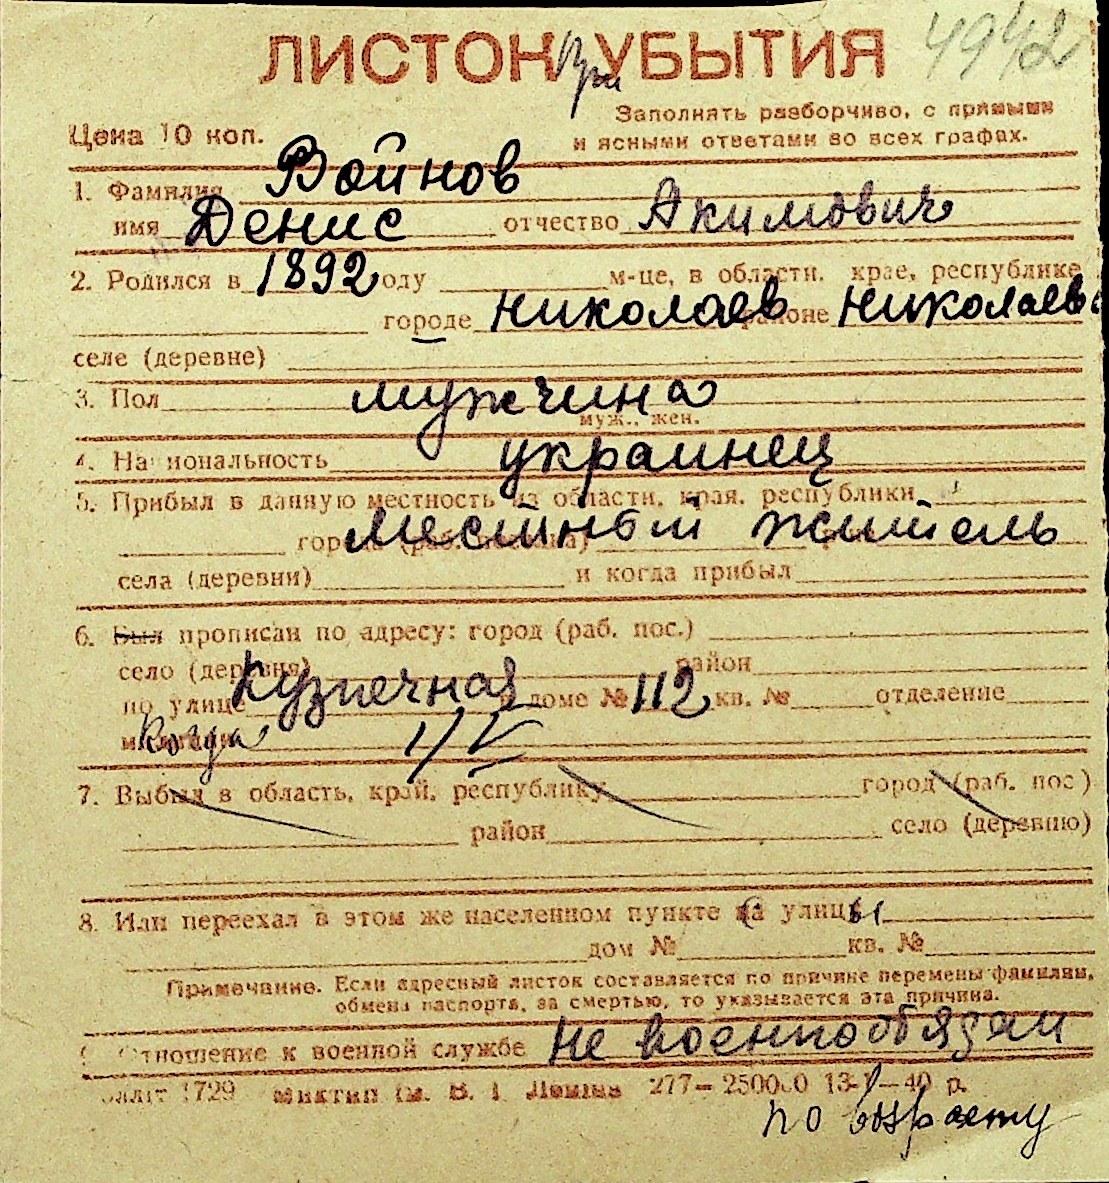 ЛИСТОК УБЫТИЯ 1942
При
Заполнять разборчиво, с прямыми
Цена 10 коп. и ясными ответами во всех графах.
1. Фамилия Войнов
имя Денис отчество Акимович
2. Родился в 1892 оду м-це, в области, крае, республике
городе Николаев районе Николаев
селе (деревне)
3. Пол мужчина
муж., жен.
4. Национальность украинец
5. Прибыл в данную местность из области, края, республики
города (раб. поселка) местный житель
села (деревни) и когда прибыл
6. Был прописан по адресу: город (раб. пос.)
село (деревня) район
по улице Кузнечная в доме № 112 кв. № отделение
милиции когда 1/V
7. Выбыл в область, край, республику город (раб. пос)
район село (деревню)
8. Или переехал в этом же населенном пункте с улицы
дом № кв. №
Примечание. Если адресный листок составляется по причине перемены фамилии,
обмена паспорта, за смертью, то указывается эта причина.
9. Отношение к военной службе не военнообязан
1729 В. І. 277— 250000 13- —40 р.
по возрасту